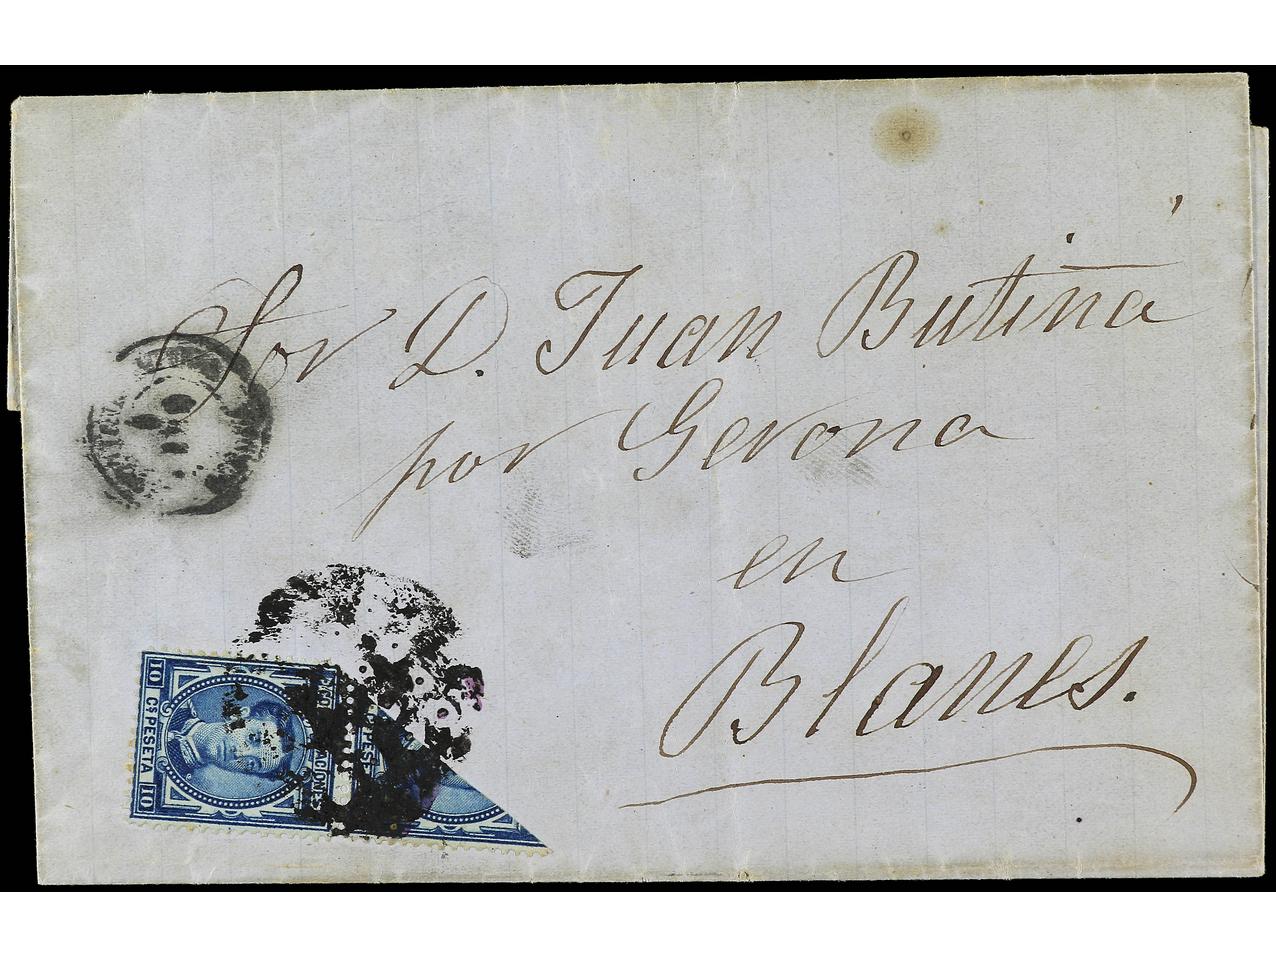 Sor D. Juan Butiñá
por Gerona
en
Blanes.
10 Cs PESETA 10